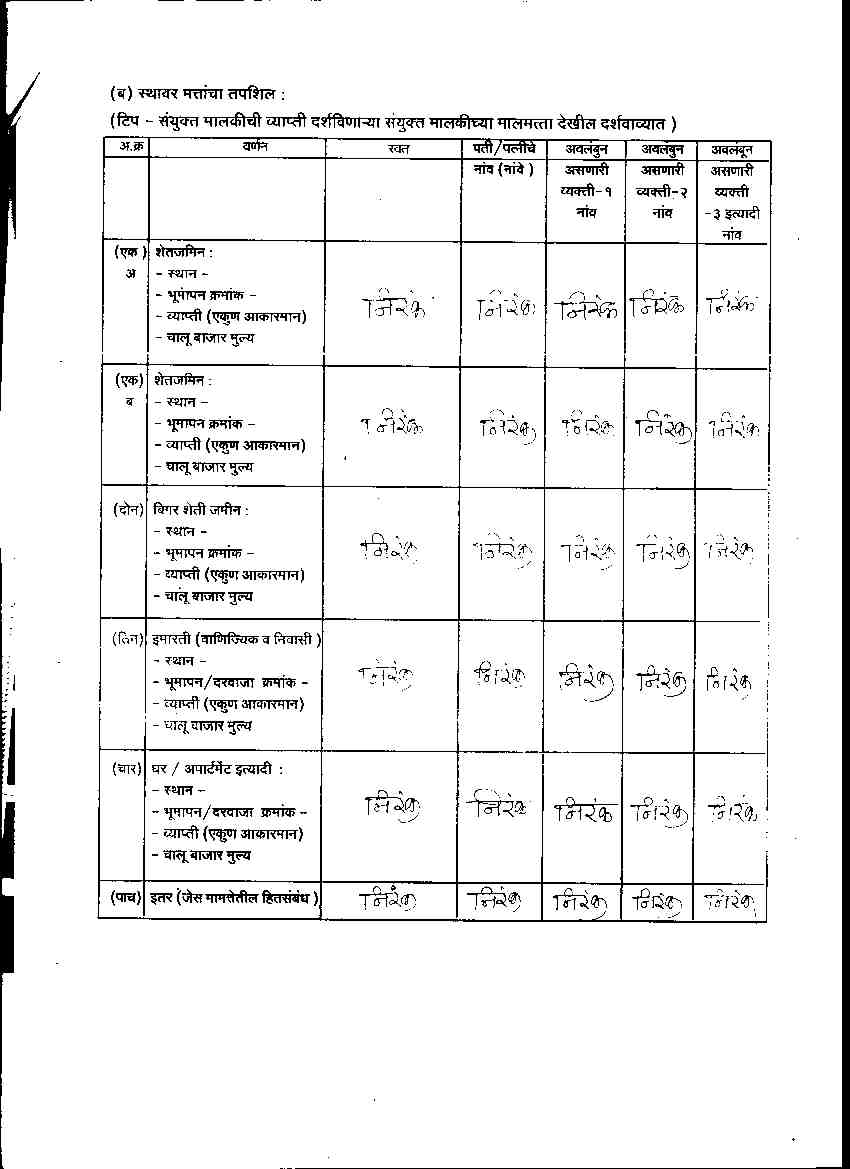 (ब) स्थावर मत्तांचा तपशिल :
(टिप - संयुक्त मालकीची व्याप्ती दर्शविणाऱ्या संयुक्त मालकीच्या मालमत्ता देखील दर्शवाव्यात )
अ.क्र वर्णन स्वत पती/पत्नीचे अवलंबुन अवलंबुन अवलंबून
नांव (नांवे ) असणारी असणारी असणारी
व्यक्ती-१ व्यक्ती-२ व्यक्ती
नांव नांव -३ इत्यादी
नांव
(एक ) शेतजमिन :
अ - स्थान -
- भूमापन क्रमांक - निरंक निरंक निरंक निरंक निरंक
- व्याप्ती (एकुण आकारमान)
- चालू बाजार मुल्य
(एक) शेतजमिन :
ब - स्थान -
- भूमापन क्रमांक - निरंक निरंक निरंक निरंक निरंक
- व्याप्ती (एकुण आकारमान)
- चालू बाजार मुल्य
(दोन) बिगर शेती जमीन :
- स्थान -
- भूमापन क्रमांक - निरंक निरंक निरंक निरंक निरंक
- व्याप्ती (एकुण आकारमान)
- चालू बाजार मुल्य
(तिन) इमारती (वाणिज्यिक व निवासी )
- स्थान -
- भूमापन/दरवाजा क्रमांक - निरंक निरंक निरंक निरंक निरंक
- व्याप्ती (एकुण आकारमान)
- चालू बाजार मुल्य
(चार) घर / अपार्टमेंट इत्यादी :
- स्थान -
- भूमापन/दरवाजा क्रमांक - निरंक निरंक निरंक निरंक निरंक
- व्याप्ती (एकुण आकारमान)
- चालू बाजार मुल्य
(पाच) इतर (जेस मामत्तेतील हितसंबंध ) निरंक निरंक निरंक निरंक निरंक